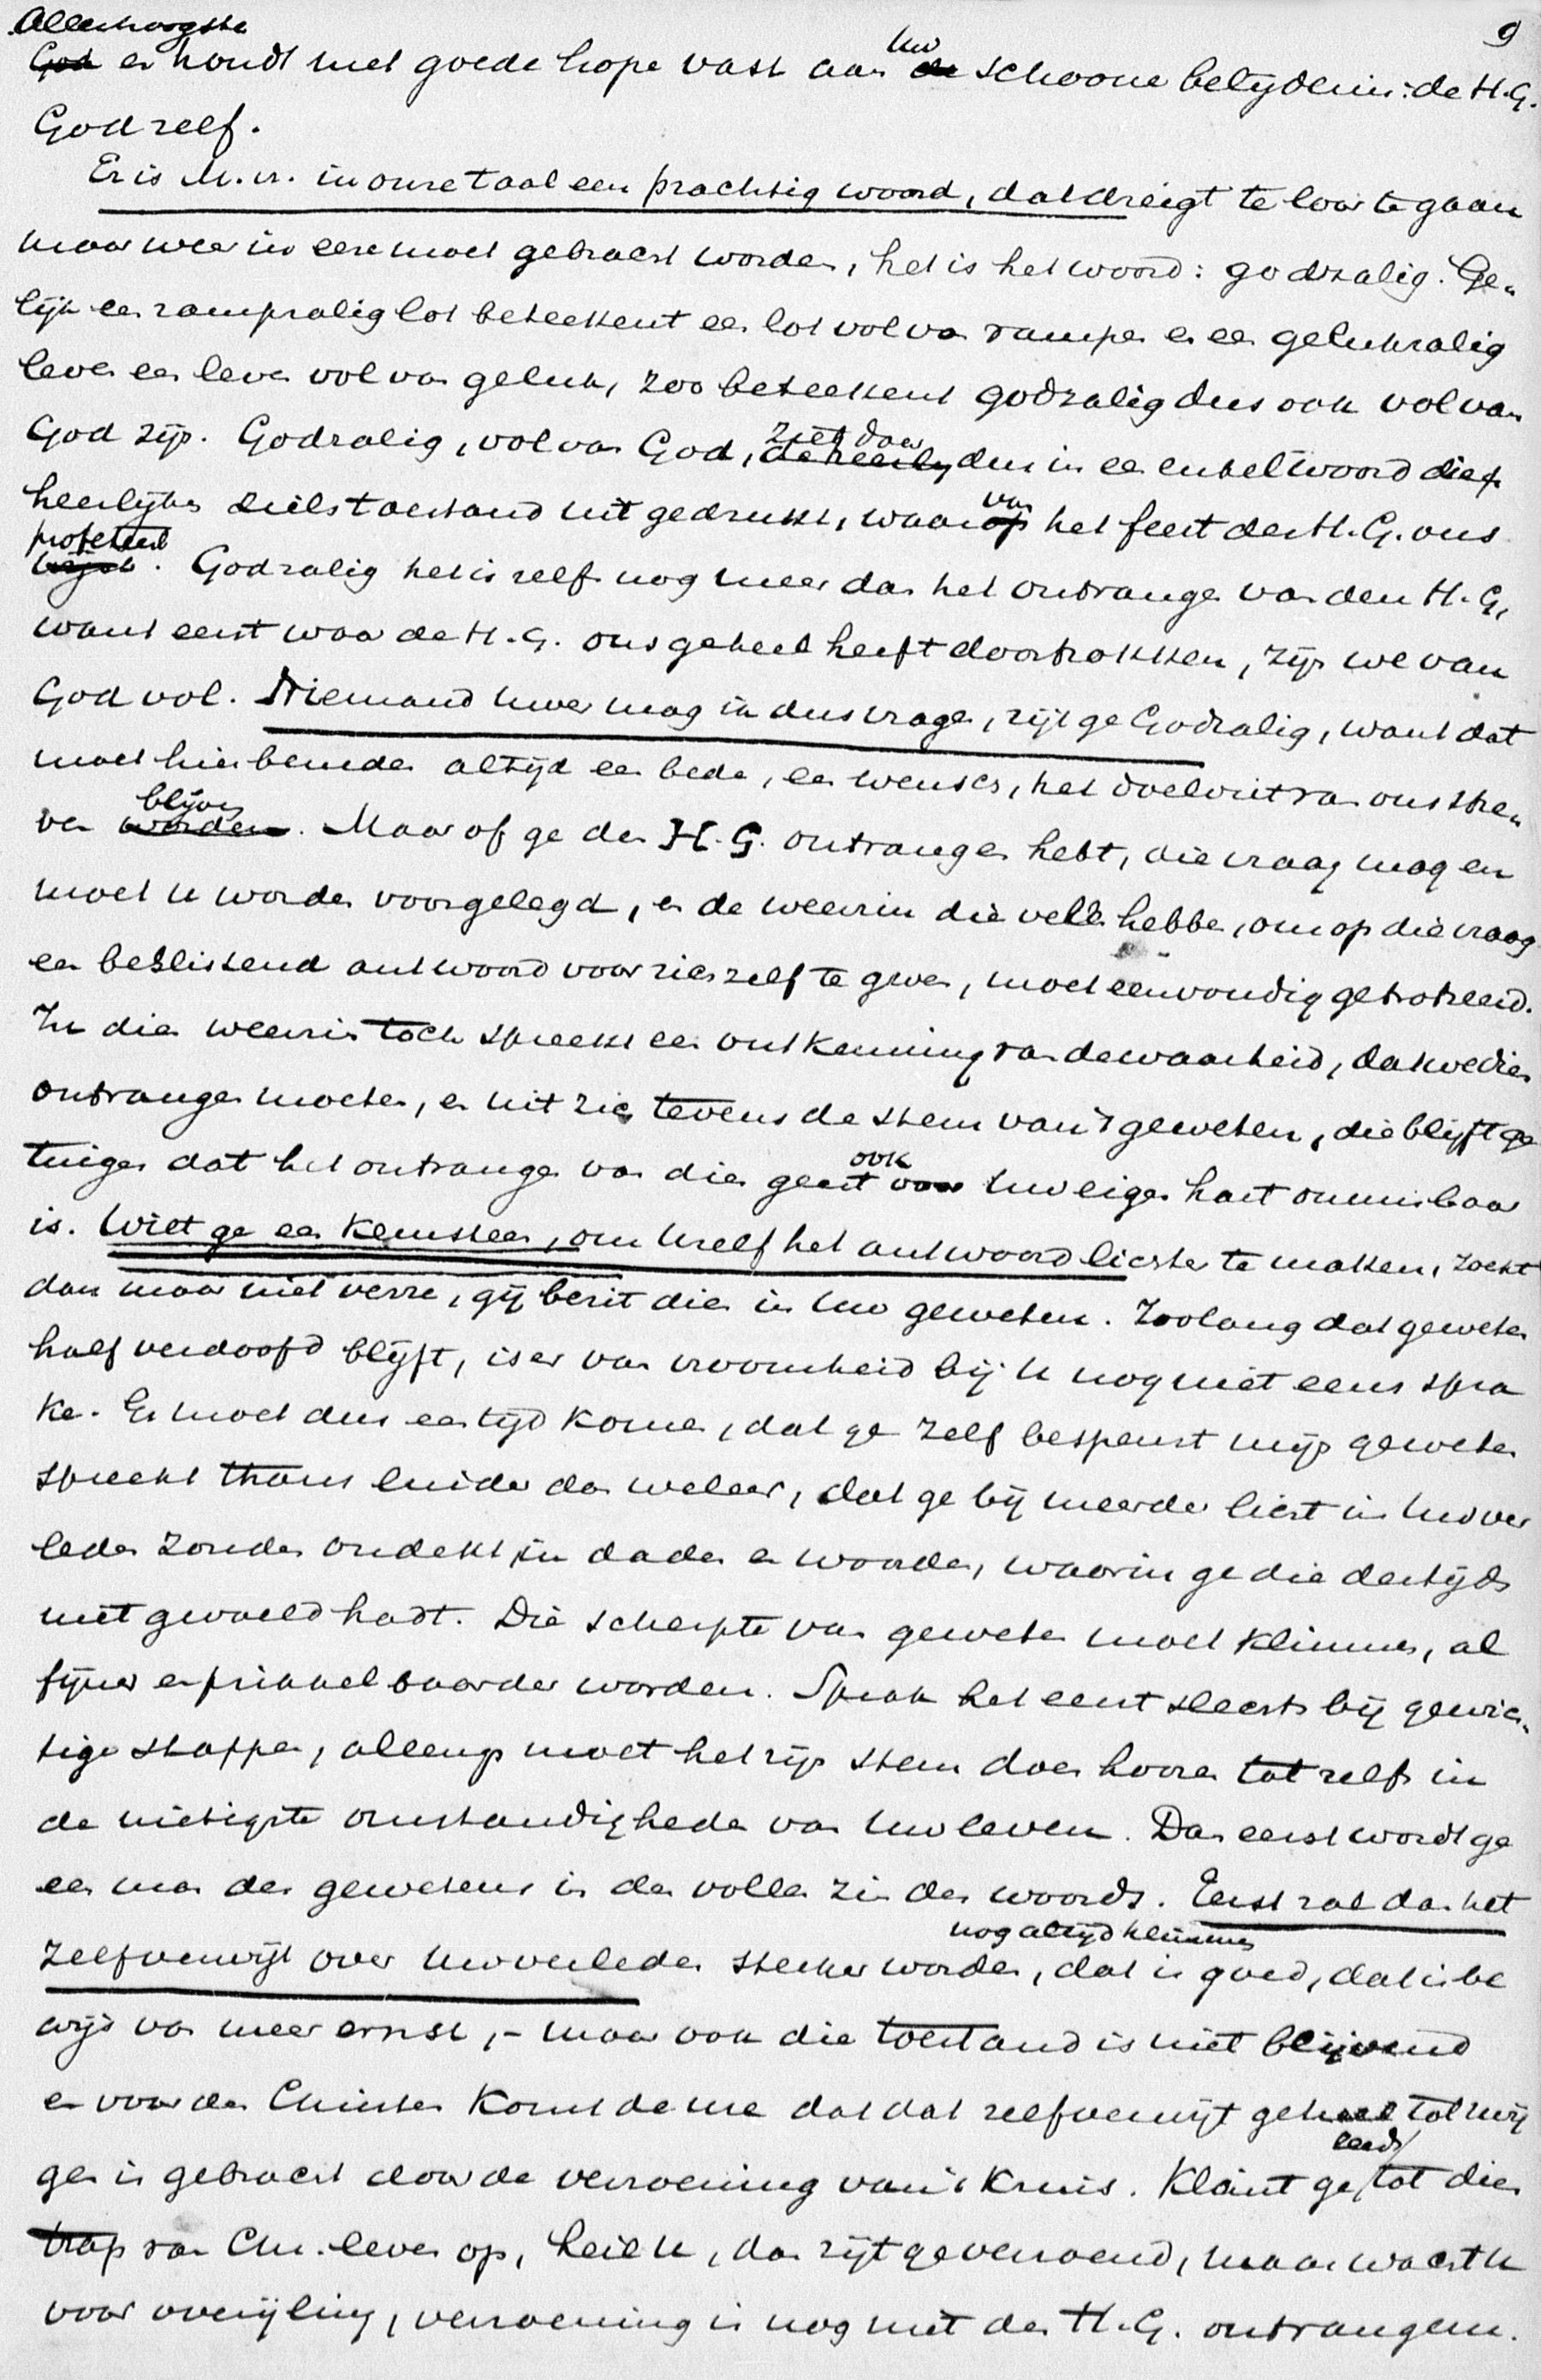 9
Allerhoogste
God en houdt met goede hope vast aan de Uw schoone belijdenis: de H.G.
God zelf.
Er is M.V. in onze taal een prachtig woord, dat dreigt te loor te gaan
maar weer in eere moet gebracht worden, het is het woord: godzalig. Ge-
lijk een rampzalig lot beteekent een lot vol van rampen en een gelukzalig
leven een leven vol van geluk, zoo beteekent godzalig dus ook vol van
God zijn. Godzalig, vol van God, ziet daar dus in een enkel woord dien
heerlijken zielstoestand uitgedrukt, waarop van het feest des H.G. ons
profeteert. Godzalig het is zelfs nog meer dan het ontvangen van den H.G.,
want eerst waar de H.G. ons geheel heeft doortrokken, zijn we van
God vol. Niemand uwer mag ik dus vragen, zijt ge Godzalig, want dat
moet hier beneden altijd een bede, een wensch, het doelwit van ons stre-
ven worden blijven. Maar of ge den H.G. ontvangen hebt, die vraag mag en
moet u worden voorgelegd, en de weerzin die velen hebben, om op die vraag
een beslissend antwoord voor zich zelf te geven, moet eenvoudig getrotseerd.
In dien weerzin toch spreekt een ontkenning van de waarheid, dat we dien
ontvangen moeten, en uit zich tevens de stem van 't geweten, die blijft ge
tuigen dat het ontvangen van dien geest ook voor Uw eigen hart onmisbaar
is. Wilt ge een kenteeken, om Uzelf het antwoord lichter te maken, zoekt
dan maar niet verre, gij bezit dien in Uw geweten. Zoolang dat geweten
half verdoofd blijft, is er van vroomheid bij U nog niet eens spra
ke. Er moet dus een tijd komen, dat ge zelf bespeurt mijn geweten
spreekt thans luider dan weleer, dat ge bij meerder licht in Uw ver
leden zonden ondekt in daden en woorden, waarin ge die destijds
niet gevoeld hadt. Die scherpte van geweten moet klimmen, al
fijner en prikkelbaarder worden. Sprak het eerst slechts bij gewich-
tige stappen, allengs moet het zijn stem doen hooren tot zelfs in
de nietigste omstandigheden van Uw leven. Dan eerst wordt ge
een man des gewetens in den vollen zin des woords. Eerst zal dan het
zelfverwijt over Uw verleden sterker worden, nog altijd klimmen, dat is goed, dat is be
wijs van meer ernst, - maar ook die toestand is niet blijvend
en voor den Christen komt de ure dat dat zelfverwijt geheel tot zwij
gen is gebracht door de verzoening van 't kruis. Klimt ge reeds tot dien
trap van Chr. leven op, heil U, dan zijt ge verzoend, maar wacht U
voor overijling, verzoening is nog niet den H.G. ontvangen.